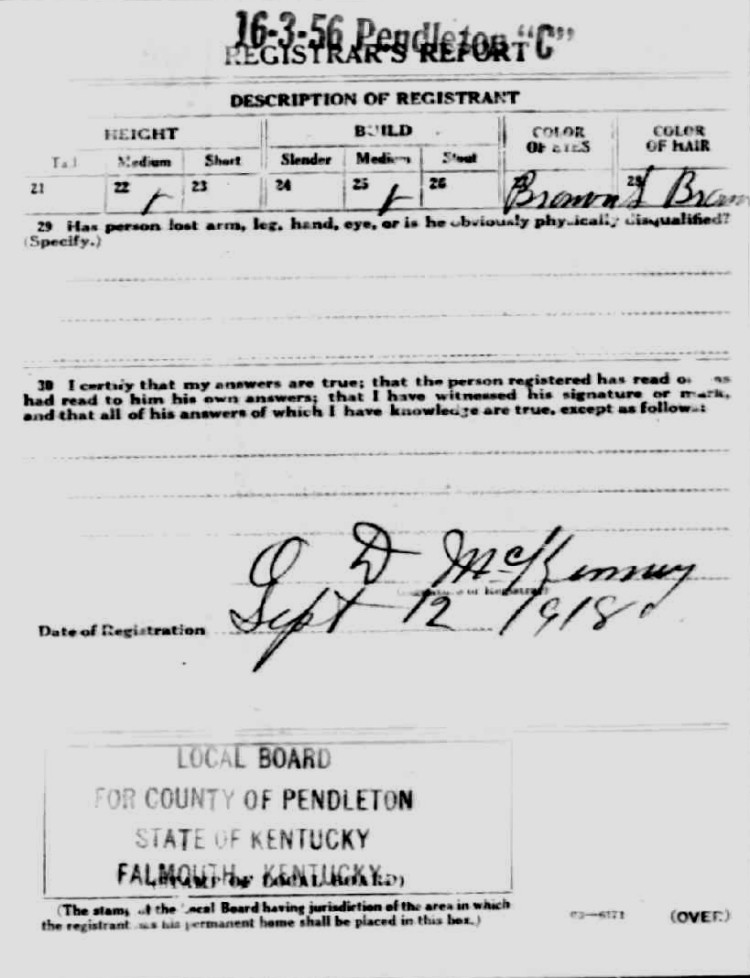 16-3-56 Pendleton "C"
REGISTRAR'S REPORT
DESCRIPTION OF REGISTRANT
HEIGHT BUILD COLOR OF EYES COLOR OF HAIR
Tall Medium Short Slender Medium Stout
21 22 23 24 25 26 Brown 28 Brown
29 Has person lost arm, leg, hand, eye, or is he obviously physically disqualified?
(Specify.)
30 I certify that my answers are true; that the person registered has read or has
had read to him his own answers; that I have witnessed his signature or mark,
and that all of his answers of which I have knowledge are true, except as follows:
O D McKenney
(Signature of Registrar)
Date of Registration Sept 12 1918
LOCAL BOARD
FOR COUNTY OF PENDLETON
STATE OF KENTUCKY
FALMOUTH, KENTUCKY.
(STAMP OF LOCAL BOARD)
(The stamp of the Local Board having jurisdiction of the area in which
the registrant has his permanent home shall be placed in this box.)
03—6171 (OVER)